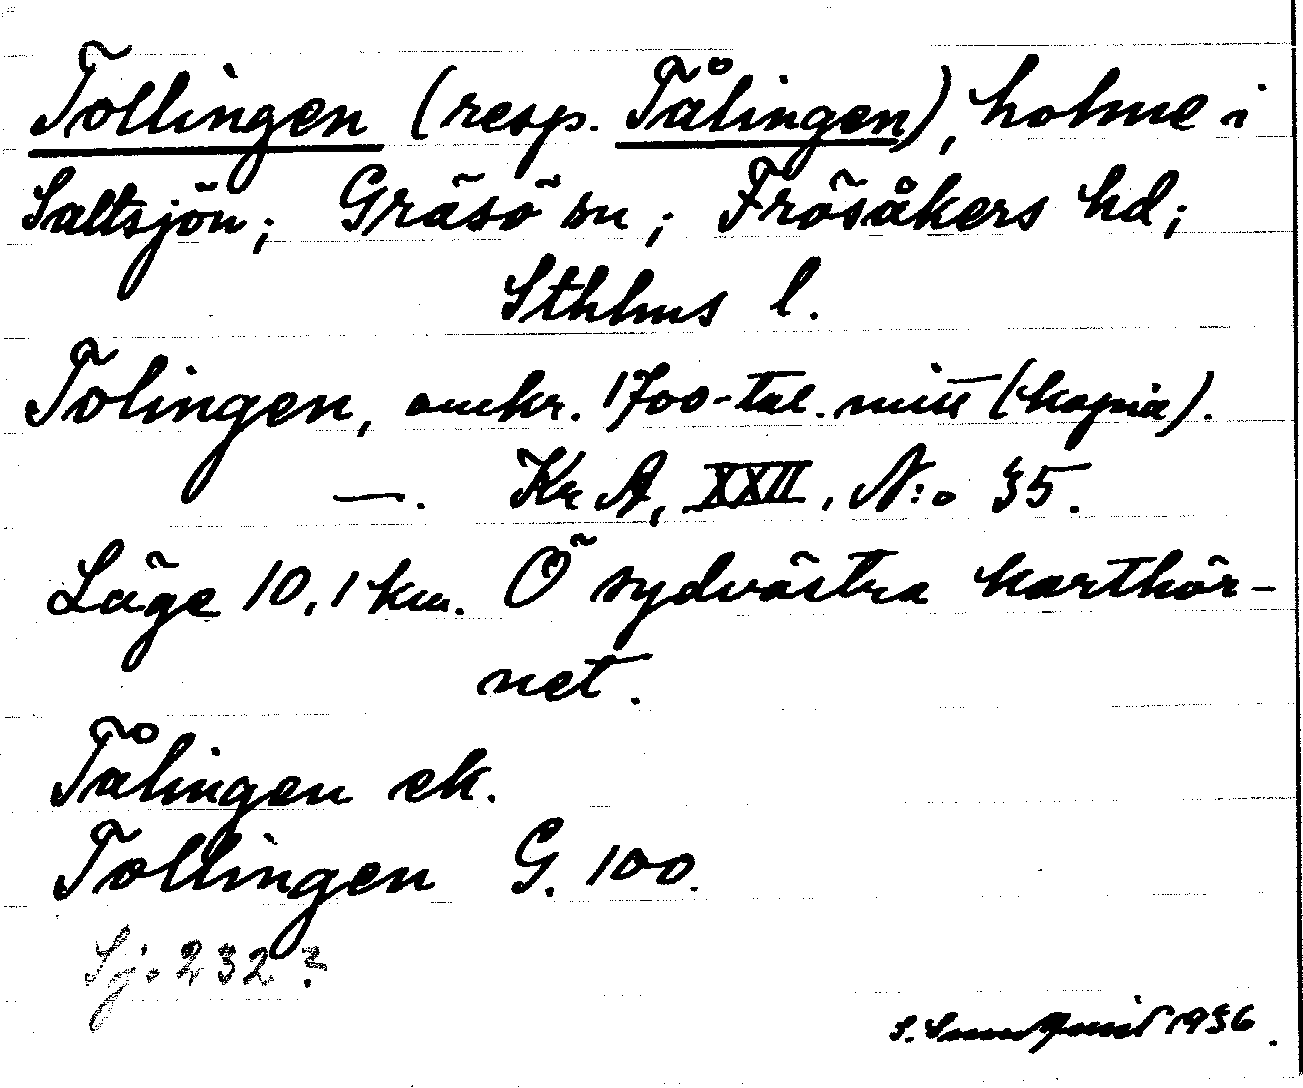 Tollingen (resp. Tålingen), holme i
Saltsjön; Gräsö sn; Frösåkers hd;
Sthlms l.
Tolingen, omkr. 1700-tal. mitt (kopia).
—. Kr A, XXII, N:o 35.
Läge 10,1 km. Ö sydvästra karthör-
net.
Tålingen ek.
Tollingen G. 100.
Sj. 232?
S. Sundquist 1936.